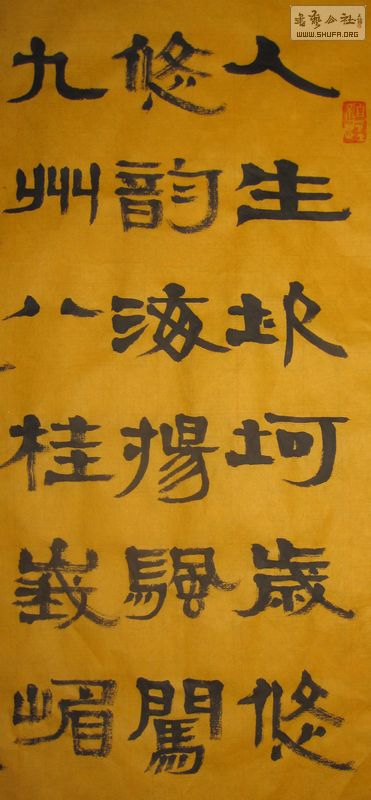 人生坎坷歲悠
悠韵海揚颿闖
九州八桂峩嵋
書藝公社
WWW.SHUFA.ORG